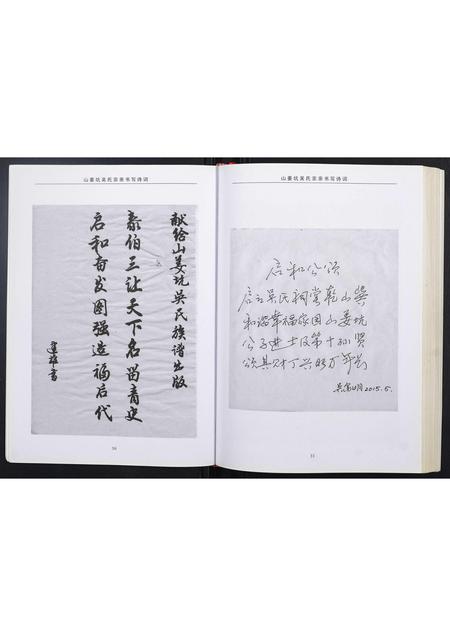 山姜坑吴氏宗亲书写诗词
献给山姜坑吴氏族谱出版
泰伯三让天下名留青史
启和奋发图强造福后代
建雄书
30
山姜坑吴氏宗亲书写诗词
启和公颂
启公吴氏祠堂乾山巽
和谐幸福家园山姜坑
公子进士及第十孙贤
颂其财丁兴旺万年
2015.5.
31